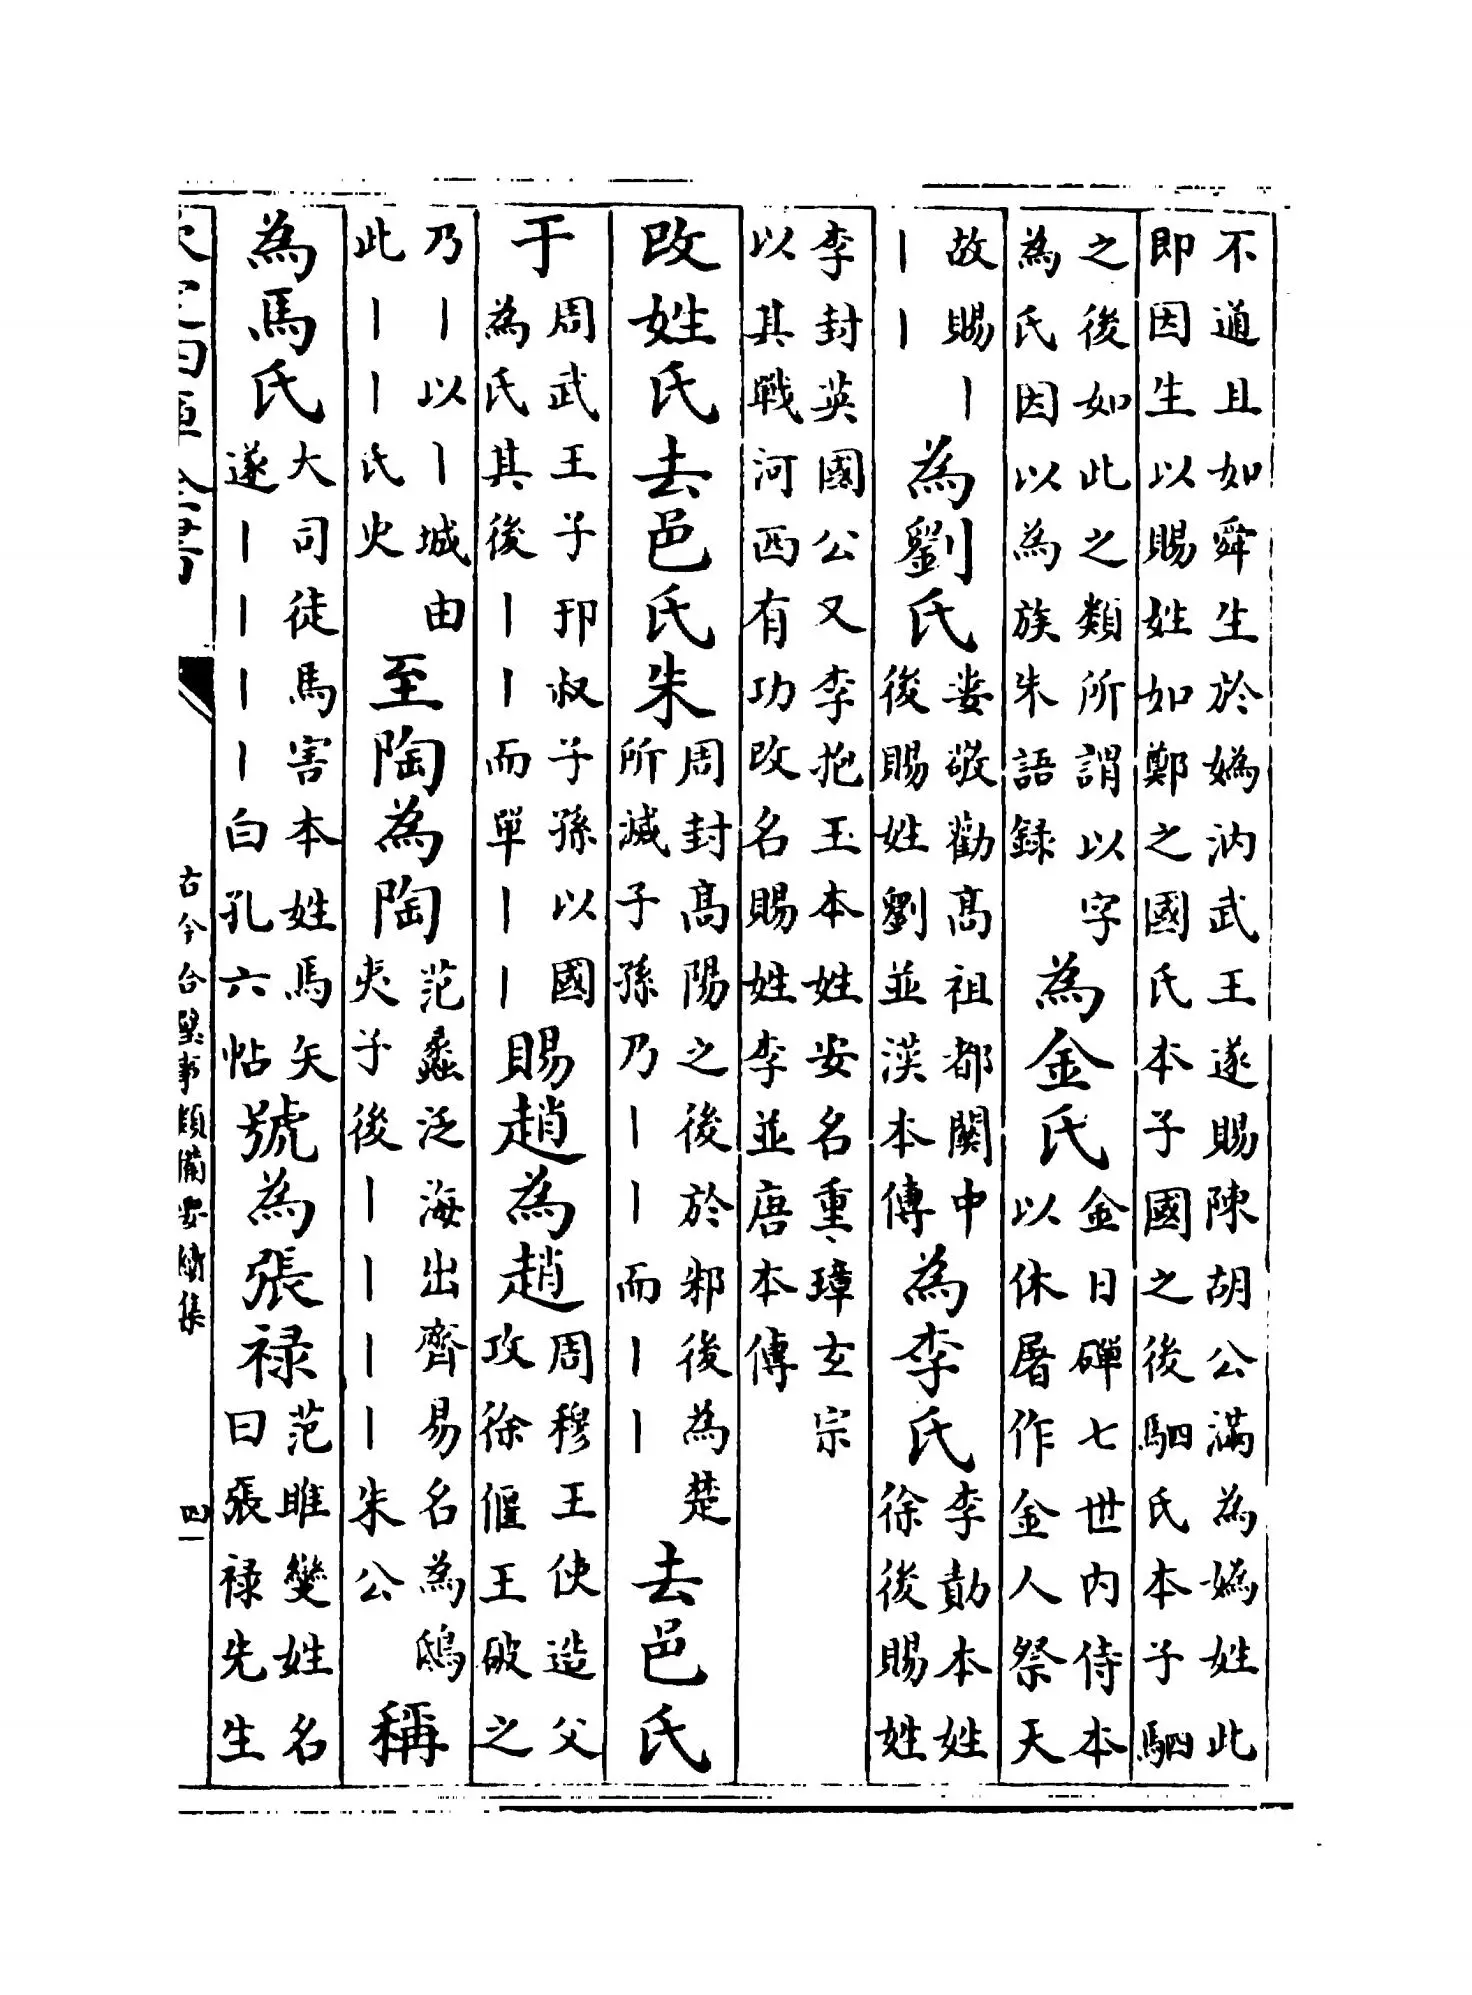 不通且如舜生於媯汭武王遂賜陳胡公滿為媯姓此
即因生以賜姓如鄭之國氏本子國之後駟氏本子駟
之後如此之類所謂以字
為氏因以為族朱語録
為金氏
金日磾七世内侍本
以休屠作金人祭天
故賜丨
丨丨
為劉氏
婁敬勸高祖都關中
後賜姓劉並漢本傳
為李氏
李勣本姓
徐後賜姓
李封英國公又李抱玉本姓安名重璋玄宗
以其戰河西有功改名賜姓李並唐本傳
改姓氏去邑氏朱
周封髙陽之後於邾後為楚
所滅子孫乃丨丨而丨丨
去邑氏
于
周武王子邘叔子孫以國
為氏其後丨丨而單丨丨
賜趙為趙
周穆王使造父
攻徐偃王破之
乃丨以丨城由
此丨丨氏史
至陶為陶
范蠡泛海出齊易名為鴟
夷子後丨丨丨丨朱公
稱
為馬氏
大司徒馬害本姓馬矢
遂丨丨丨丨白孔六帖
號為張禄
范雎變姓名
曰張禄先生
欽定四庫全書
古今合璧事類備要續集
四